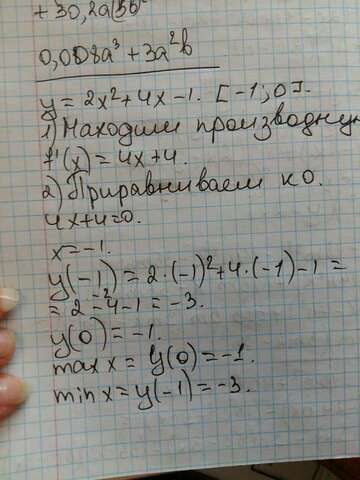 +30,2a(5b
0,008a³ + 3a²b
y = 2x² + 4x - 1. [-1; 0].
1) Находим производную
f'(x) = 4x + 4.
2) Приравниваем к 0.
4x + 4 = 0.
x = -1.
y(-1) = 2·(-1)² + 4·(-1) - 1 =
= 2 - 4 - 1 = -3.
y(0) = -1.
max x = y(0) = -1.
min x = y(-1) = -3.